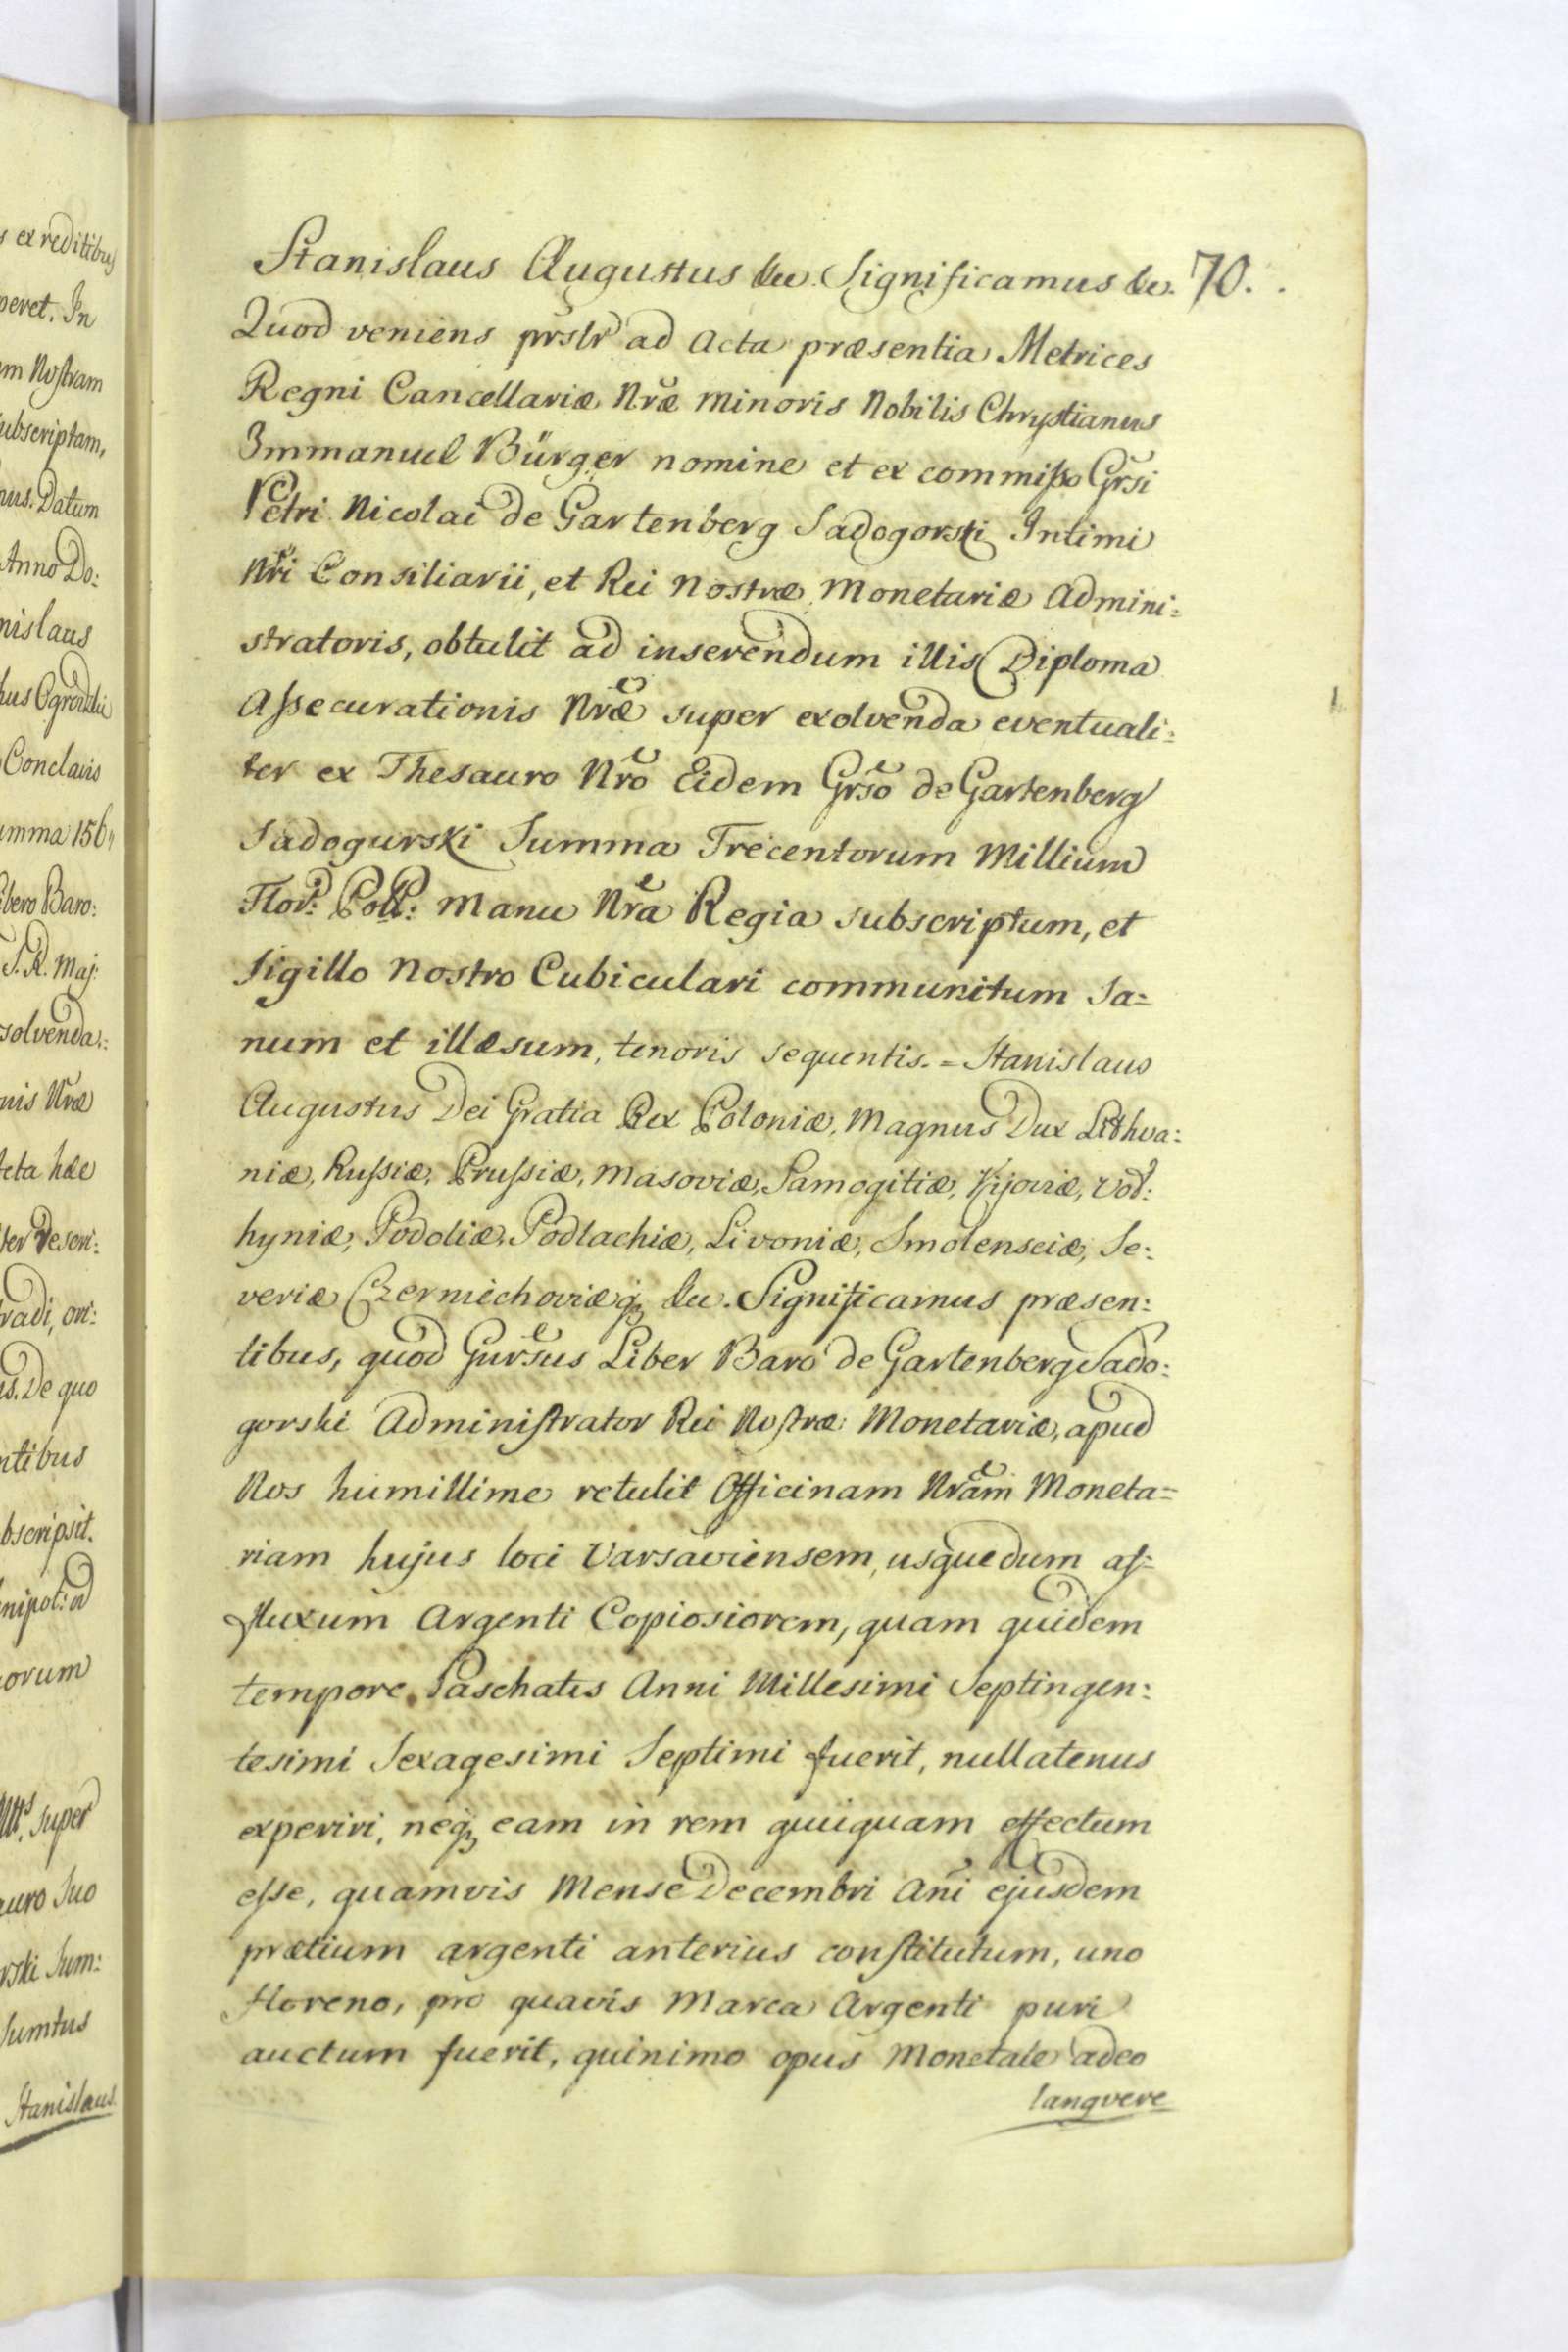 s ex reditibus
peret. In
m Nostram
ubscriptam,
nus. Datum
Anno Do:
nislaus
Conclavis
umma 156
ibero Baro:
S. R. Maj:
solvenda:
nis Nræ
cta hæc
ter descri:
tradi, ori:
is. De quo
ntibus
bscripsit.
nipot: ad
orum
super
auro Suo
rski Sum:
Sumtus
Stanislaus
Stanislaus Augustus &c. Significamus &c. 70.
Quod veniens prslr ad Acta præsentia Metrices
Regni Cancellariæ Nræ minoris Nobilis Chrystianus
Immanuel Bürger nomine et ex commisso Grsi
Petri Nicolai de Gartenberg Sadogorski Intimi
Nri Consiliarii, et Rei Nostræ Monetariæ Admini:
stratoris, obtulit ad inserendum illis Diploma
Assecurationis Nræ super exolvenda eventuali:
ter ex Thesauro Nro Eidem Grso de Gartenberg
Sadogurski Summa Trecentorum Millium
Flor: Poll: Manu Nra Regia subscriptum, et
Sigillo Nostro Cubiculari communitum Sa=
num et illæsum, tenoris sequentis. = Stanislaus
Augustus Dei Gratia Rex Poloniæ, Magnus Dux Lithva:
niæ, Russiæ, Prussiæ, Masoviæ, Samogitiæ, Kijoviæ, Vol:
hyniæ, Podoliæ, Podlachiæ, Livoniæ, Smolensciæ, Se:
veriæ Czerniechoviæq; &c. Significamus præsen:
tibus, quod Gursus Liber Baro de Gartenberg Sado:
gorski Administrator Rei Nostræ Monetariæ, apud
Nos humillime retulit Officinam Nram Moneta=
riam hujus loci Varsaviensem, usquedum af:
fluxum Argenti Copiosiorem, quam quidem
tempore Paschatis Anni Millesimi Septingen:
tesimi Sexagesimi Septimi fuerit, nullatenus
experiri, neq; eam in rem quiquam effectum
esse, quamvis Mense Decembri Ani ejusdem
prætium argenti anterius constitutum, uno
floreno, pro quavis Marca Argenti puri
auctum fuerit, quinimo opus Monetale adeo
langvere